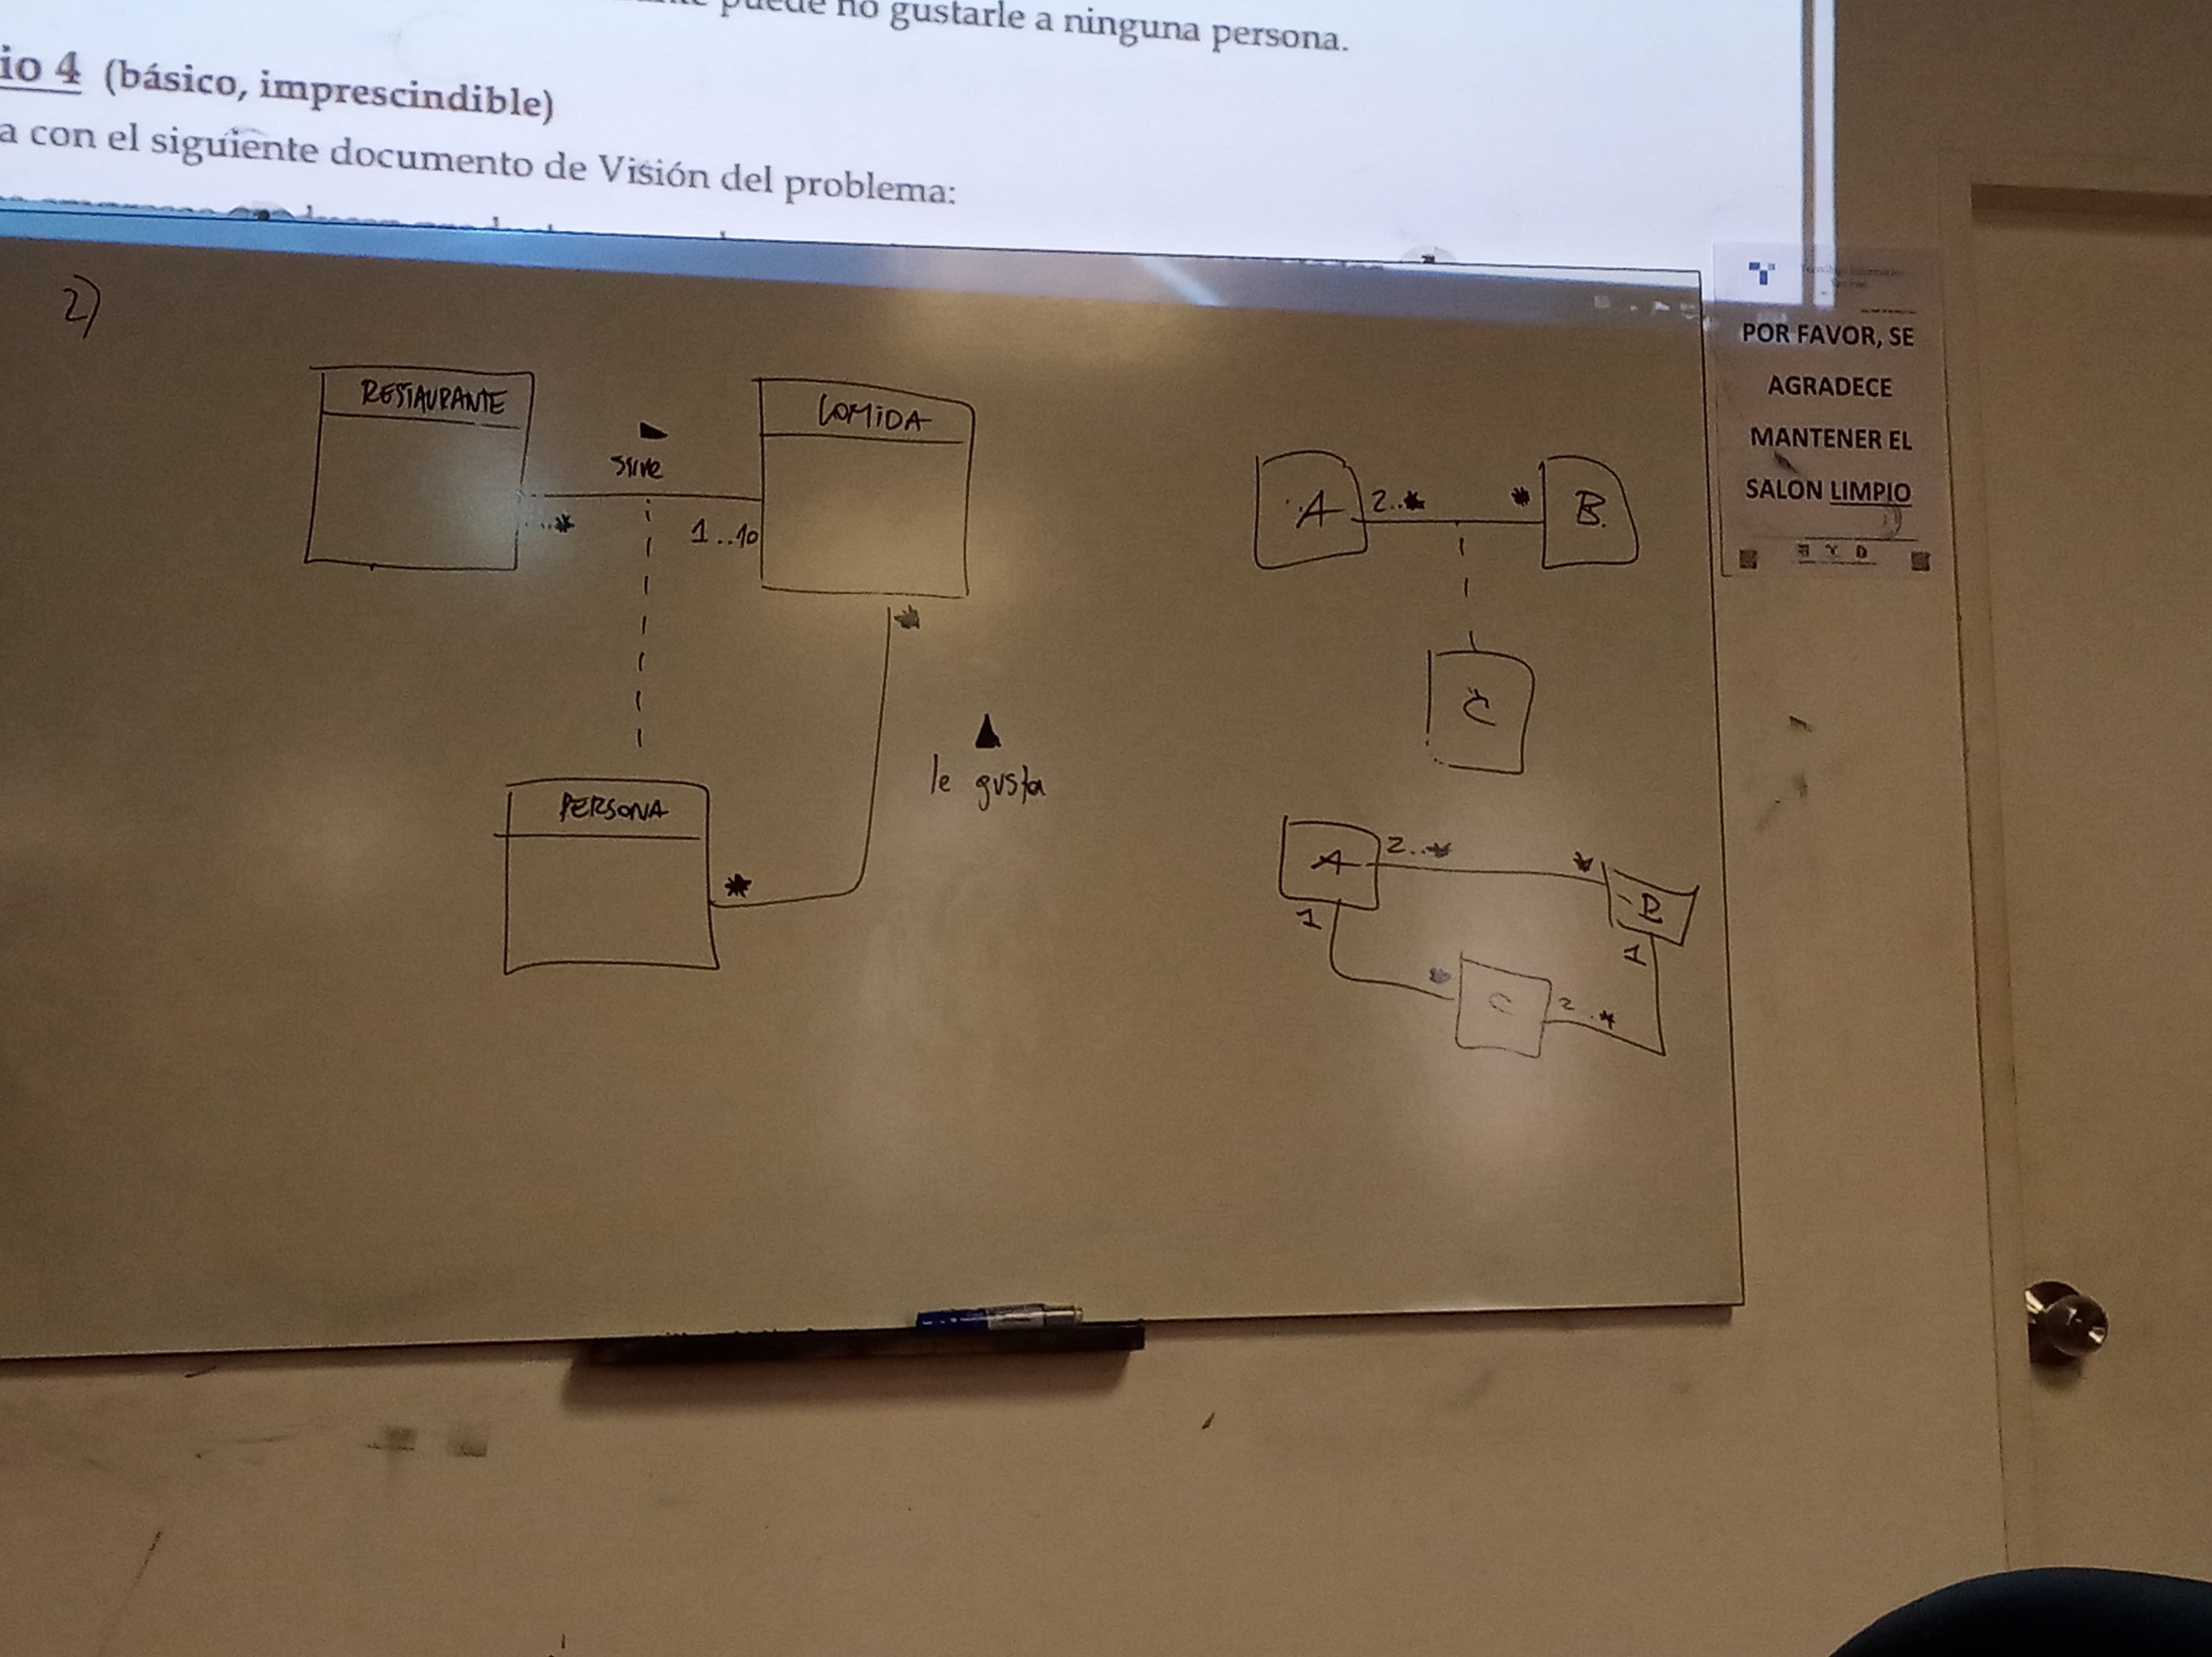 puede no gustarle a ninguna persona.
io 4 (básico, imprescindible)
a con el siguiente documento de Visión del problema:
2)
RESTAURANTE
sirve
..*
1..10
COMIDA
*
le gusta
PERSONA
*
A
2..*
*
B
C
A
2..*
*
B
1
*
C
2..*
1
POR FAVOR, SE
AGRADECE
MANTENER EL
SALON LIMPIO